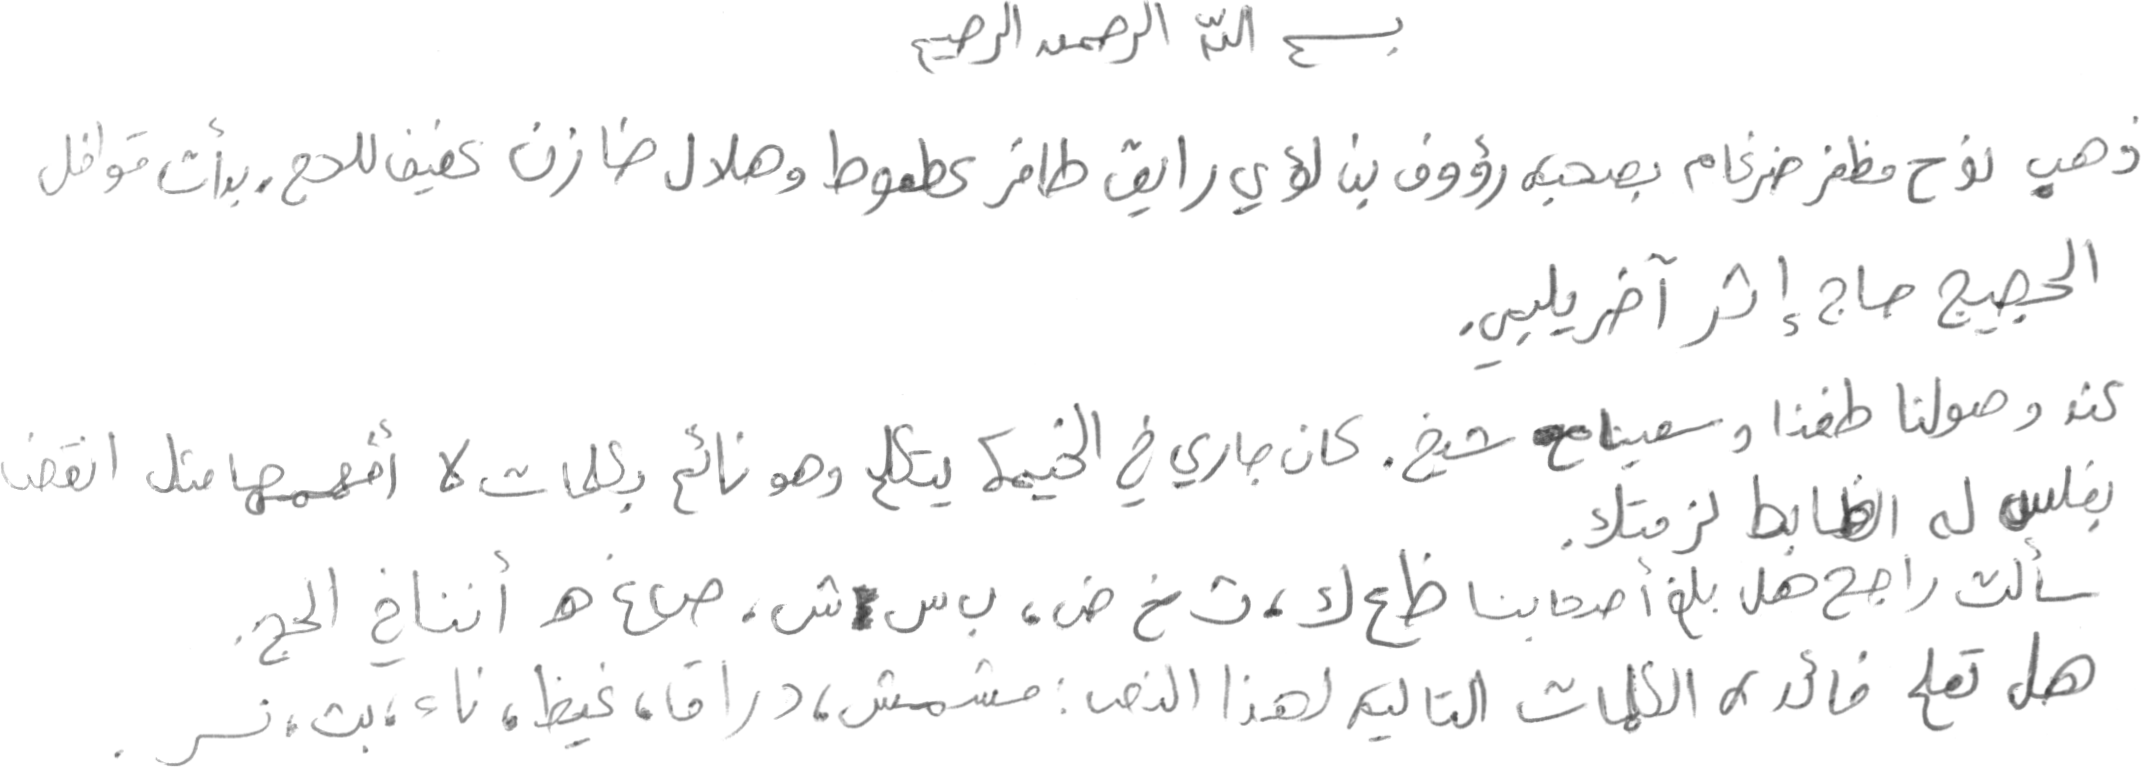 بسم الله الرحمن الرحيم
ذهب نوح مظفر ضرغام بصحبه رؤوف بن لؤي رايق ظافر عطعوط وهلال خازن عفيف للحج. بدأت قوافل
الحجيج حاج إثر آخر يلبي.
عند وصولنا طفنا وسعينا شيخ. كان جاري في الخيمة يتكلم وهو نائم بكلمات لا أفهمها مثل انقضنا
بغلس له الضابط لزمتك.
سألت راجح هل بلغ أصحابنا ظ ع ك، ث خ ض، ب س ش، ص غ ه أننا في الحج.
هل تعلم فائده الكلمات التاليه لهذا النص: مشمش، دراق، غيظ، ناء، بث، نسر.